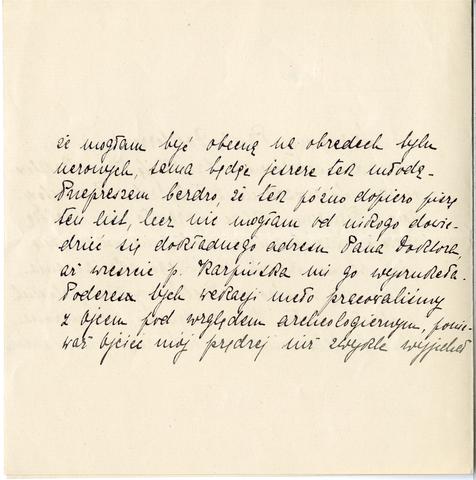 że mogłam być obecną na obradach tylu
uczonych, sama będąc jeszcze tak młodą.
Przepraszam bardzo, że tak późno dopiero piszę
ten list, lecz nie mogłam od nikogo dowie-
dzieć się dokładnego adresu Pana Doktora,
aż wreszcie p. Karpińska mi go wyszukała.
Podczas tych wakacji mało pracowaliśmy
z Ojcem pod względem archeologicznym, ponie-
waż Ojciec mój prędzej niż zwykle wyjechał